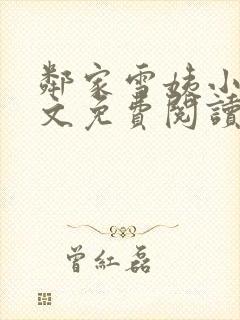 鄰家雪姨小
文免費閱讀
曾紅磊